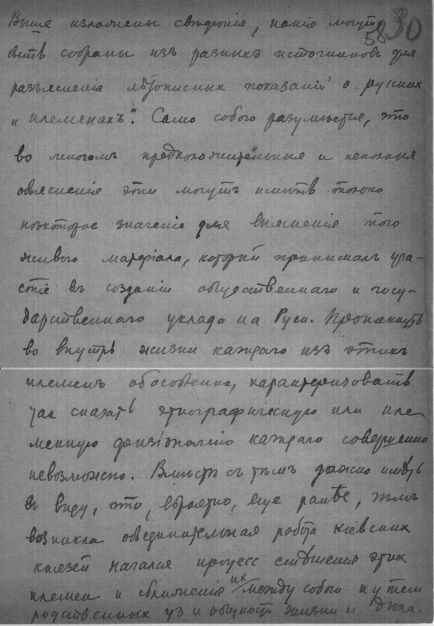 Выше изложены свѣдѣнія, какія могутъ
30
58
быть собраны изъ разныхъ источниковъ для
разъясненія лѣтописныхъ показаній о русских
„племенахъ“. Само собою разумѣется, что
во многомъ предположительныя и неполныя
объясненія эти могутъ имѣть только
нѣкоторое значеніе для выясненія того
живого матеріала, который принималъ уча-
стіе въ созданіи общественнаго и госу-
дарственнаго уклада на Руси. Проникнуть
во внутрь жизни каждаго изъ этихъ
племенъ обособленно, характеризовать
так сказать этнографическую или пле-
менную физіономію каждаго совершенно
невозможно. Вмѣстѣ съ тѣмъ должно имѣть
въ виду, что, вѣроятно, еще ранѣе, чѣмъ
возникла объединительная работа кіевских
князей начался процесс смѣшенія этих
племен и сближенія их между собою путем
родственных уз и общности жизни и быта.